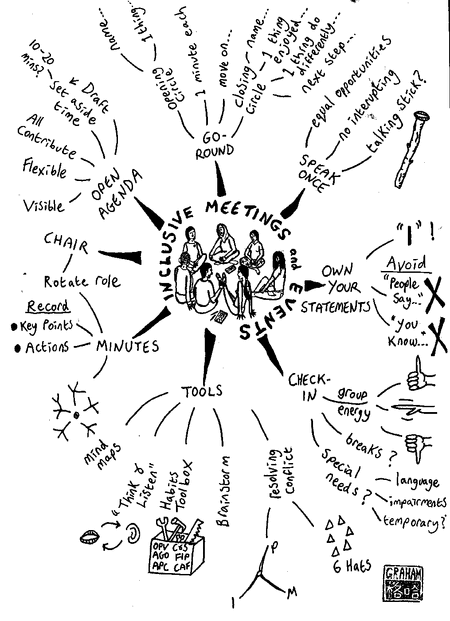 INCLUSIVE MEETINGS
and
EVENTS
GO-
ROUND
Opening
circle
name...
1 thing...
1 minute each
move on...
closing
circle
name...
1 thing
enjoyed...
1 thing do
differently...
next step...
SPEAK
ONCE
equal opportunities
no interupting
talking stick?
OWN
YOUR
STATEMENTS
"I"!
Avoid
"People
Say..."
"You
Know..."
CHECK-
IN
group
energy
breaks?
special
needs?
language
impairments
temporary?
TOOLS
resolving
conflict
P
I
M
6 Hats
Brainstorm
Habits
Toolbox
OPV C&S
AGO FIP
APC CAF
"Think &
Listen"
mind
maps
MINUTES
Record
Key Points
Actions
Rotate role
CHAIR
OPEN
AGENDA
Visible
Flexible
All
Contribute
set aside
time
10-20
mins?
Draft
GRAHAM